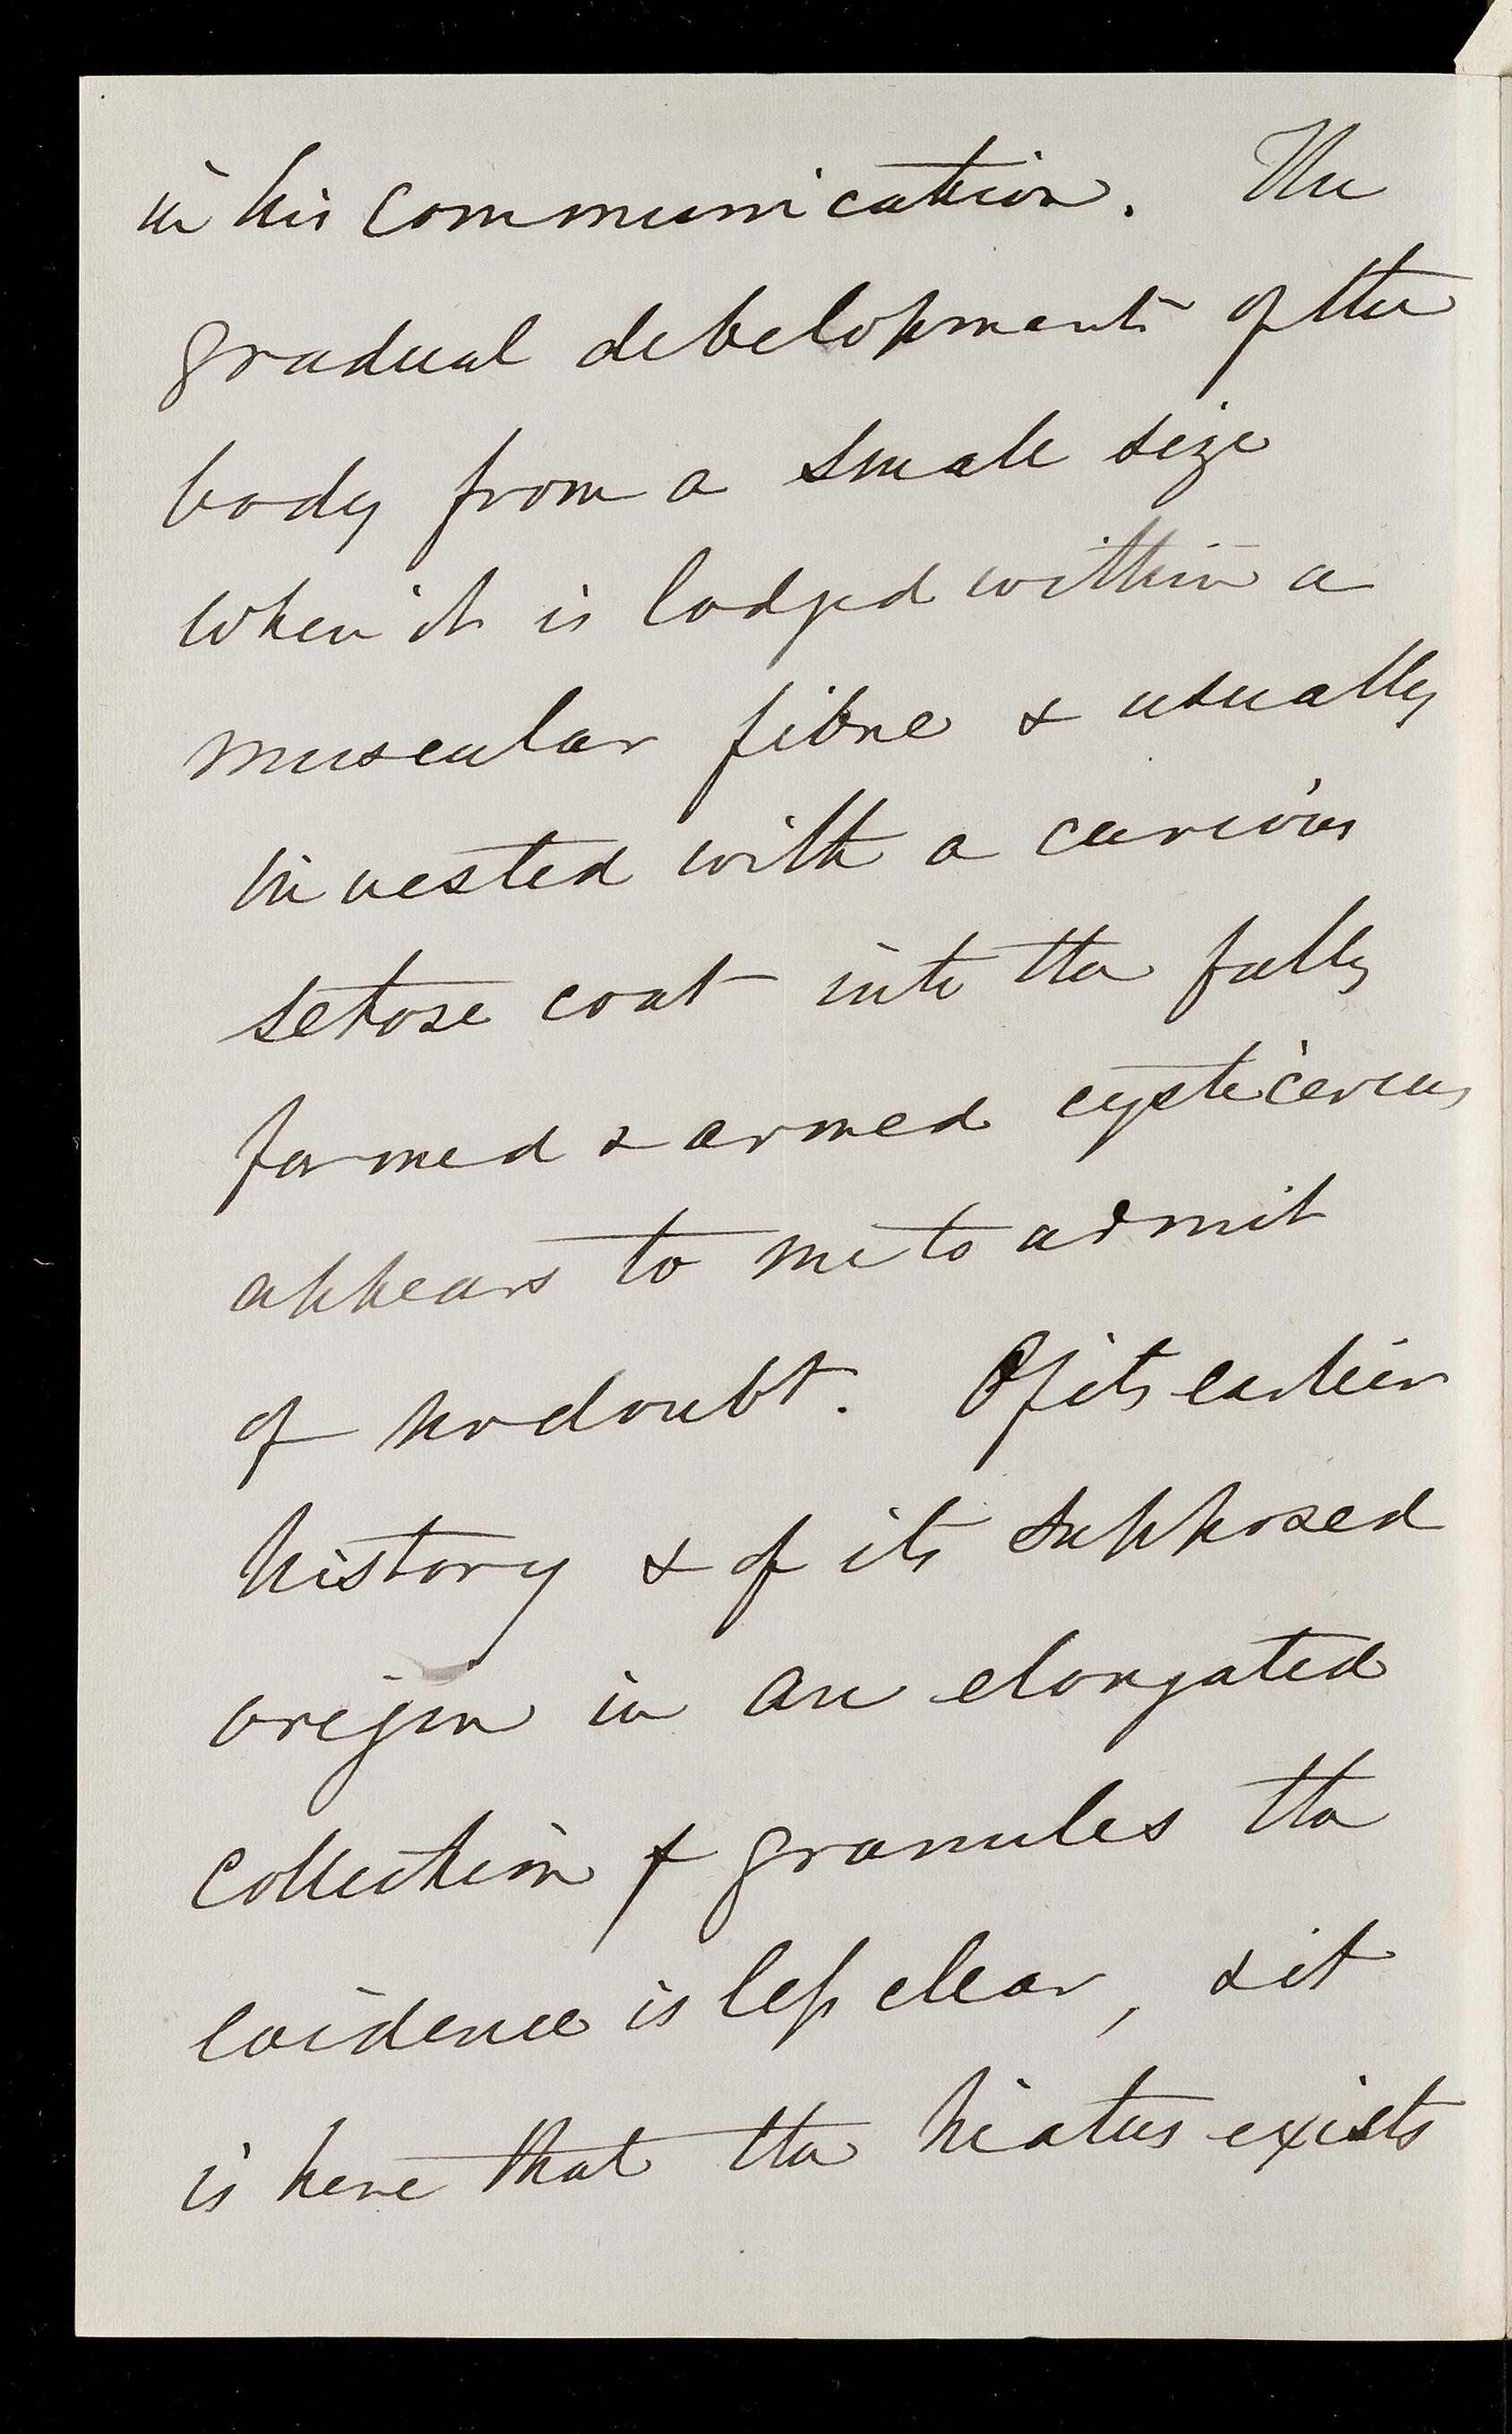 in his communication. The
gradual development of the
body from a small size
when it is lodged within a
muscular fibre & usually
invested with a curious
setose coat into the fully
formed & armed cysticercus
appears to me to admit
of no doubt. Of its earlier
history & of its supposed
origin in an elongated
collection of granules the
evidence is less clear, & it
is here that the hiatus exists